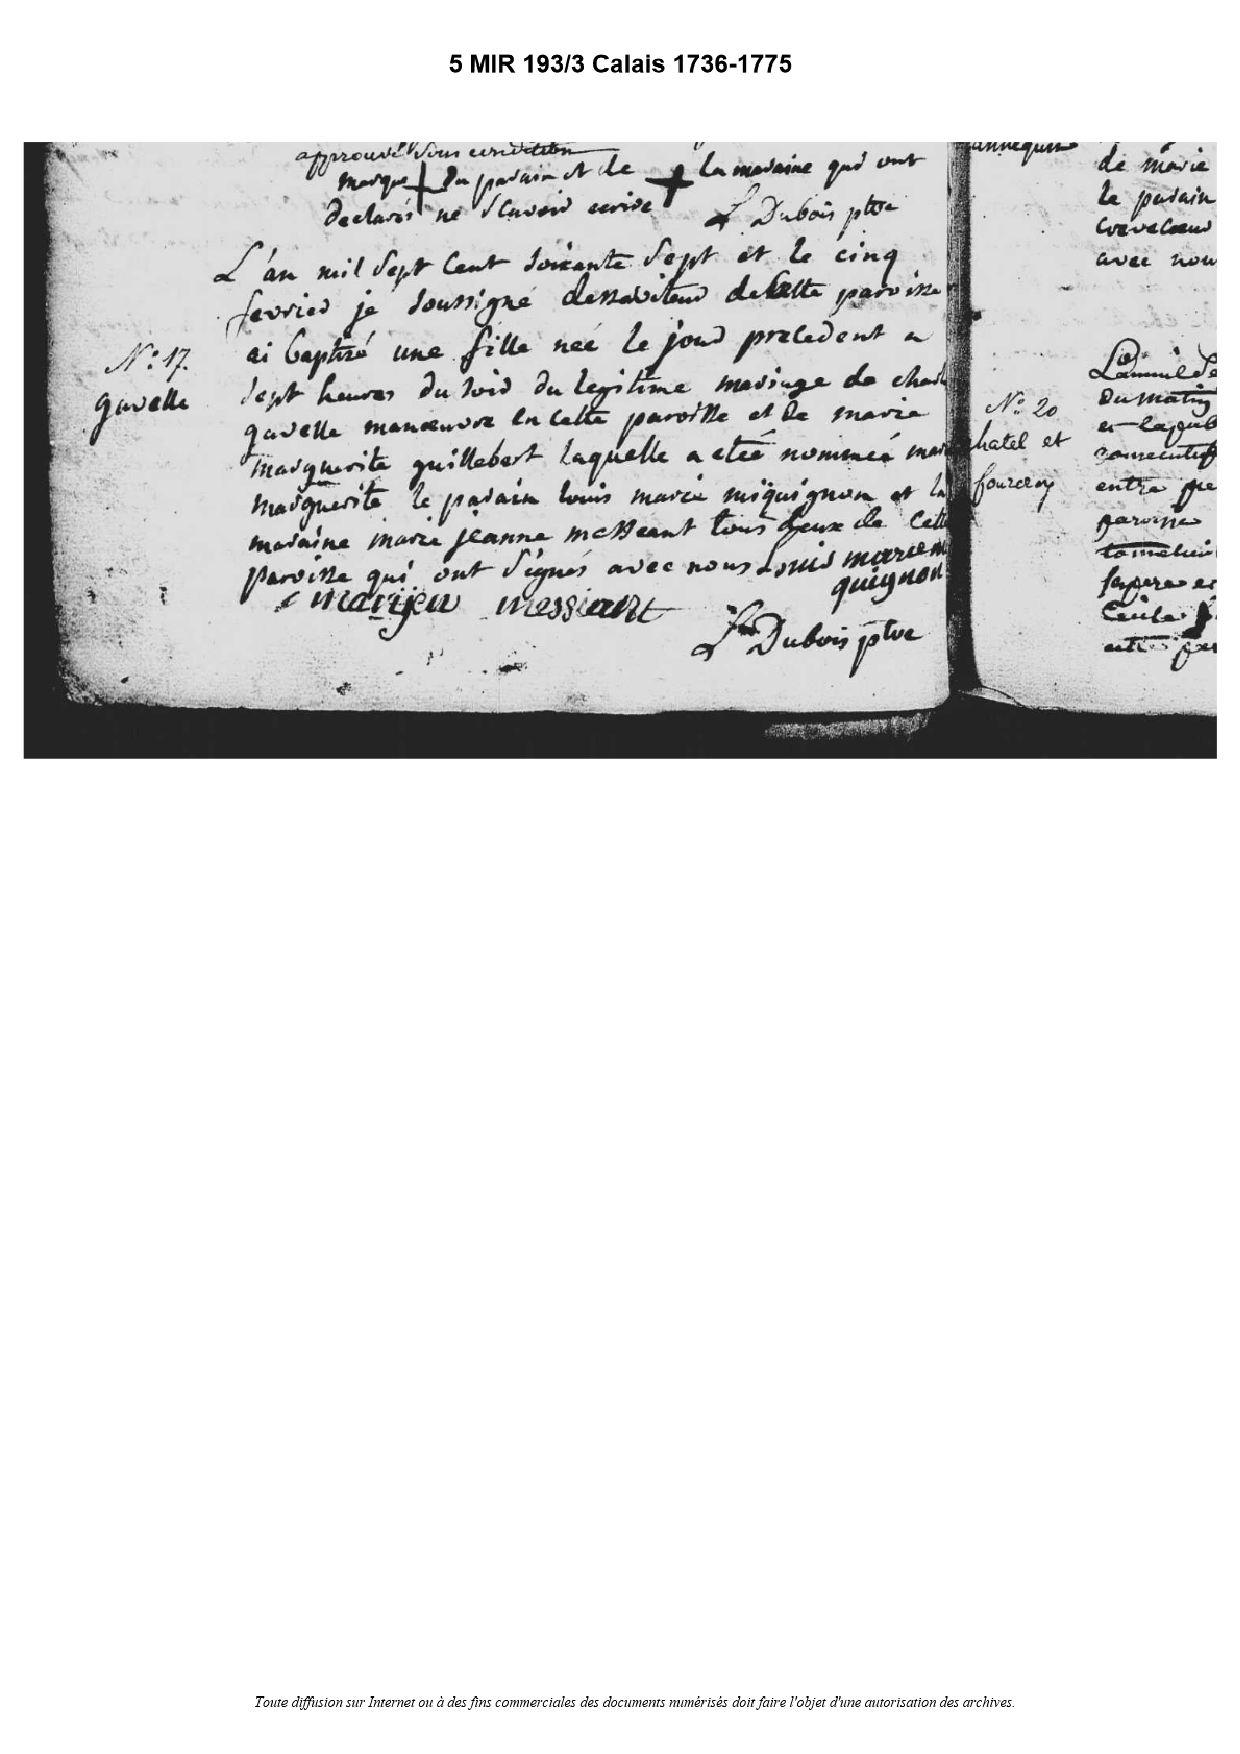 5 MIR 193/3 Calais 1736-1775
approuvé sous condition
marque du parain et de la maraine qui ont
declarés ne sçavoir ecrire L Dubois ptre
L'an mil sept cent soixante sept et le cinq
fevrier je soussigné desserviteur de cette paroisse
N: 17.
gavelle
ai baptisé une fille née le jour precedent a
sept heures du soir du legitime mariage de charl
gavelle manœuvre en cette paroisse et de marie
marguerite guillebert laquelle a eteé nommeé mar
marguerite le parain louis marie miquignon et la
maraine marie jeanne messeant tous deux de cette
paroisse qui ont signés avec nous Louis marie m
quignon
marijen messiant
L Dubois ptre
de marie
le parain
avec nou
N: 20
chatel et
fourcroy
Du matin
consecutif
entre
paroisse
Toute diffusion sur Internet ou à des fins commerciales des documents numérisés doit faire l'objet d'une autorisation des archives.